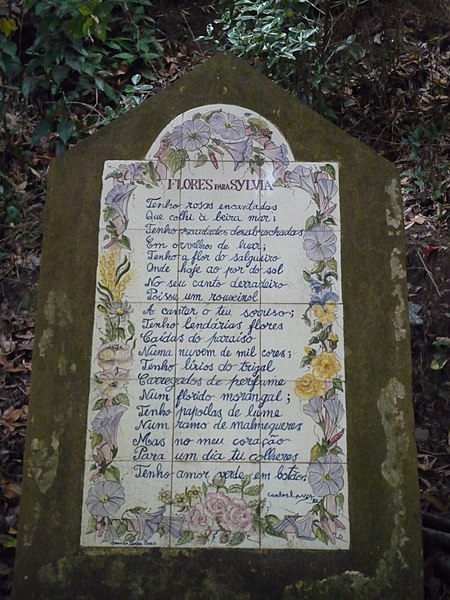 FLORES PARA SYLVIA
Tenho rosas encantadas
Que colhi à beira mar;
Tenho saudades desabrochadas
Em orvalhos de luar;
Tenho a flor do salgueiro
Onde hoje ao por do sol
No seu canto derradeiro
Poisou um rouxinol
A cantar o teu sorriso;
Tenho lendárias flores
Caídas do paraíso
Numa nuvem de mil cores;
Tenho lírios do trigal
Carregados de perfume
Num florido morangal;
Tenho papoilas de lume
Num ramo de malmequeres
Mas no meu coração
Para um dia tu colheres
Tenho amor verde em botão.